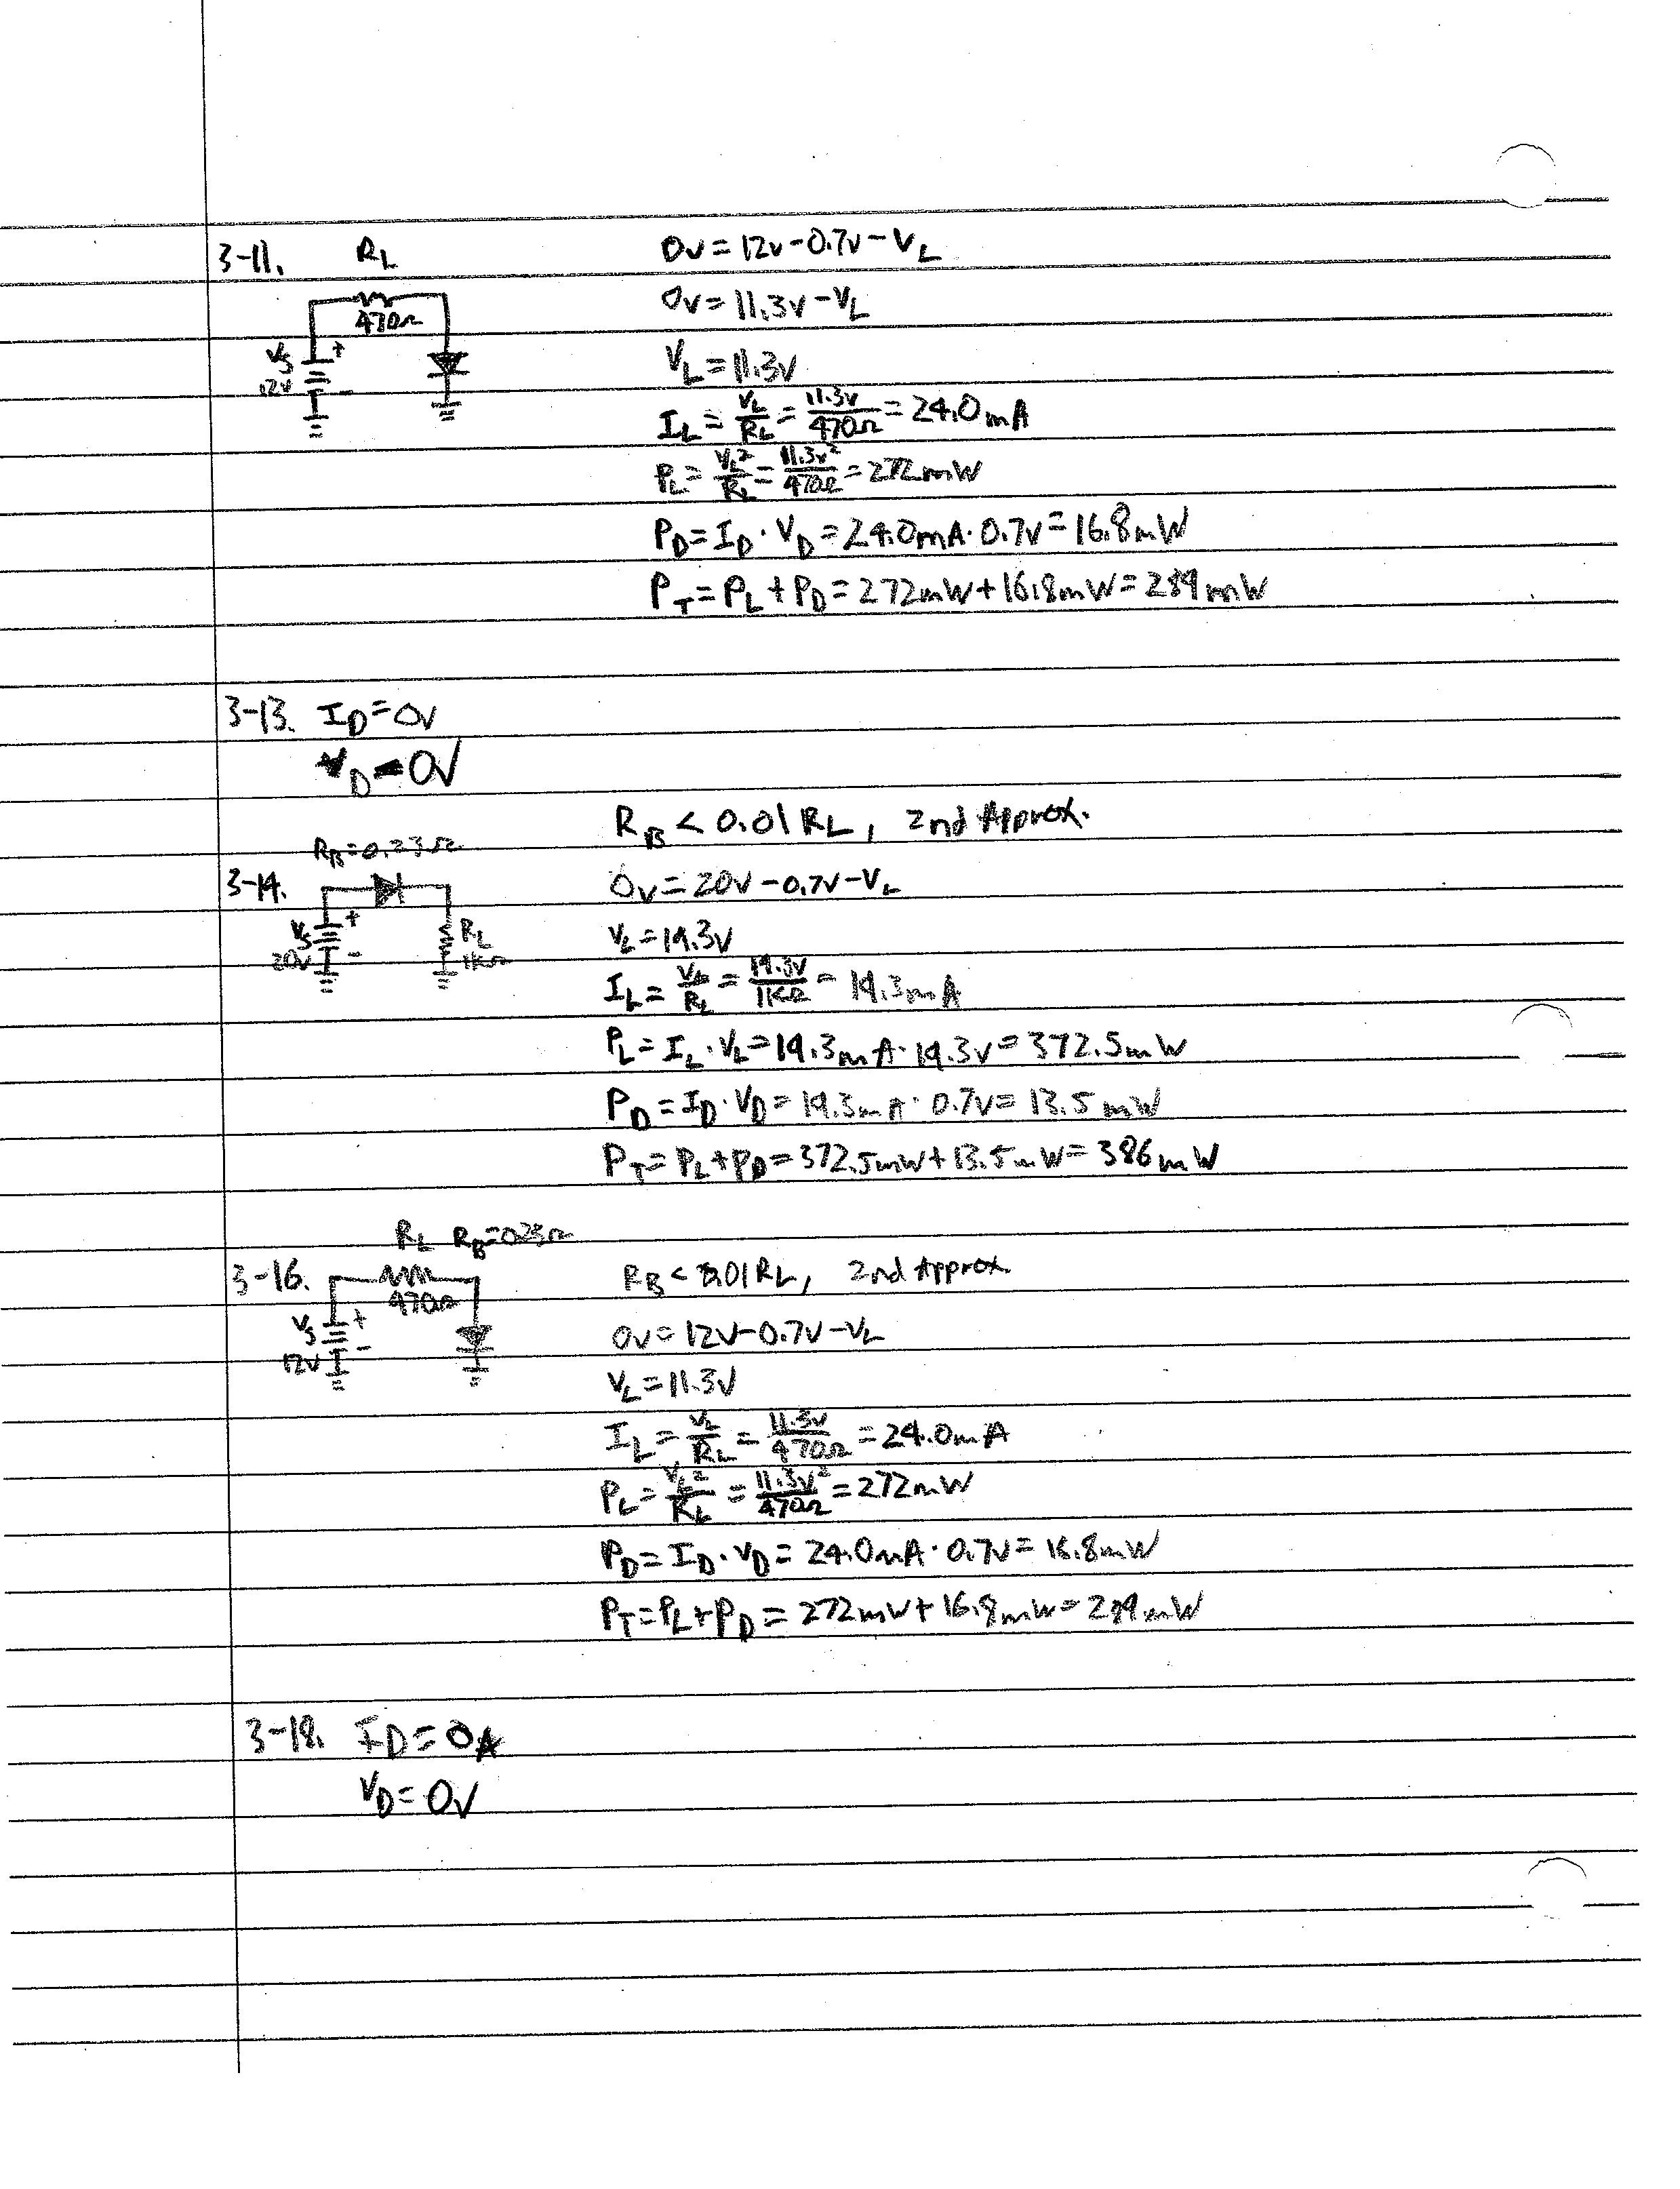 3-11. R_L
470Ω
V_S + 12V -
0V = 12V - 0.7V - V_L
0V = 11.3V - V_L
V_L = 11.3V
I_L = V_L/R_L = 11.3V/470Ω = 24.0mA
P_L = V_L²/R_L = 11.3V²/470Ω = 272mW
P_D = I_D · V_D = 24.0mA · 0.7V = 16.8mW
P_T = P_L + P_D = 272mW + 16.8mW = 289mW
3-13. I_D = 0V
V_D = 0V
R_B = 0.23Ω
3-14.
V_S + 20V -
R_L 1KΩ
R_B < 0.01 R_L, 2nd Approx.
0V = 20V - 0.7V - V_L
V_L = 19.3V
I_L = V_L/R_L = 19.3V/1KΩ = 19.3mA
P_L = I_L · V_L = 19.3mA · 19.3V = 372.5mW
P_D = I_D · V_D = 19.3mA · 0.7V = 13.5mW
P_T = P_L + P_D = 372.5mW + 13.5mW = 386mW
R_L R_B = 0.23Ω
3-16.
470Ω
V_S + 12V -
R_B < 0.01 R_L, 2nd Approx.
0V = 12V - 0.7V - V_L
V_L = 11.3V
I_L = V_L/R_L = 11.3V/470Ω = 24.0mA
P_L = V_L²/R_L = 11.3V²/470Ω = 272mW
P_D = I_D · V_D = 24.0mA · 0.7V = 16.8mW
P_T = P_L + P_D = 272mW + 16.8mW = 289mW
3-18. I_D = 0A
V_D = 0V